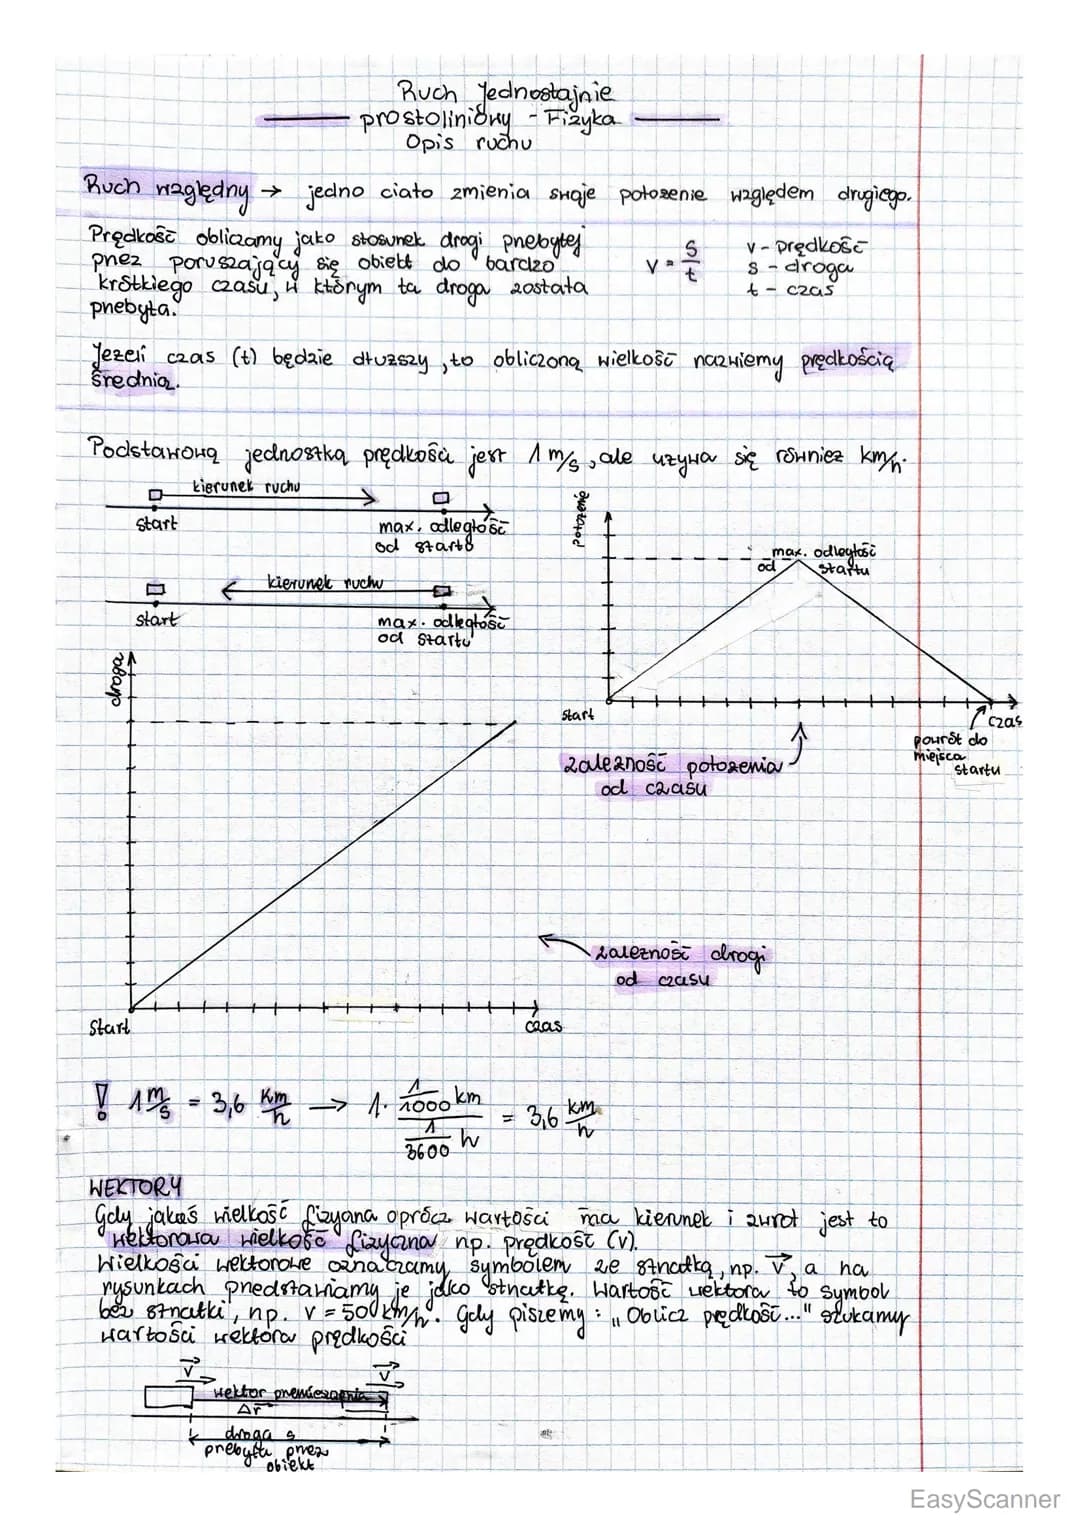 Ruch Jednostajnie
prostoliniowy - Fizyka
Opis ruchu
Ruch względny → jedno ciało zmienia swoje położenie względem drugiego.
Prędkość obliczamy jako stosunek drogi przebytej
przez poruszający się obiekt do bardzo
krótkiego czasu, w którym ta droga została
przebyta.
v = s/t
v - prędkość
s - droga
t - czas
Jeżeli czas (t) będzie dłuższy, to obliczoną wielkość nazwiemy prędkością
średnią.
Podstawową jednostką prędkości jest 1 m/s, ale używa się również km/h.
kierunek ruchu
start
max. odległość
od startu
kierunek ruchu
start
max. odległość
od startu
położenie
max. odległość
od startu
start
czas
powrót do
miejsca
startu
zależność położenia
od czasu
droga
Start
czas
zależność drogi
od czasu
! 1 m/s = 3,6 km/h → 1 · (1/1000 km)/(1/3600 h) = 3,6 km/h
WEKTORY
Gdy jakaś wielkość fizyczna oprócz wartości ma kierunek i zwrot jest to
wektorowa wielkość fizyczna np. prędkość (v).
Wielkości wektorowe oznaczamy symbolem ze strzałką, np. v⃗, a na
rysunkach przedstawiamy je jako strzałkę. Wartość wektora to symbol
bez strzałki, np. v = 500 km/h. Gdy piszemy: „Oblicz prędkość..." szukamy
wartości wektora prędkości
v⃗ v⃗
wektor przemieszczenia
Δr⃗
droga s
przebyta przez
obiekt
EasyScanner